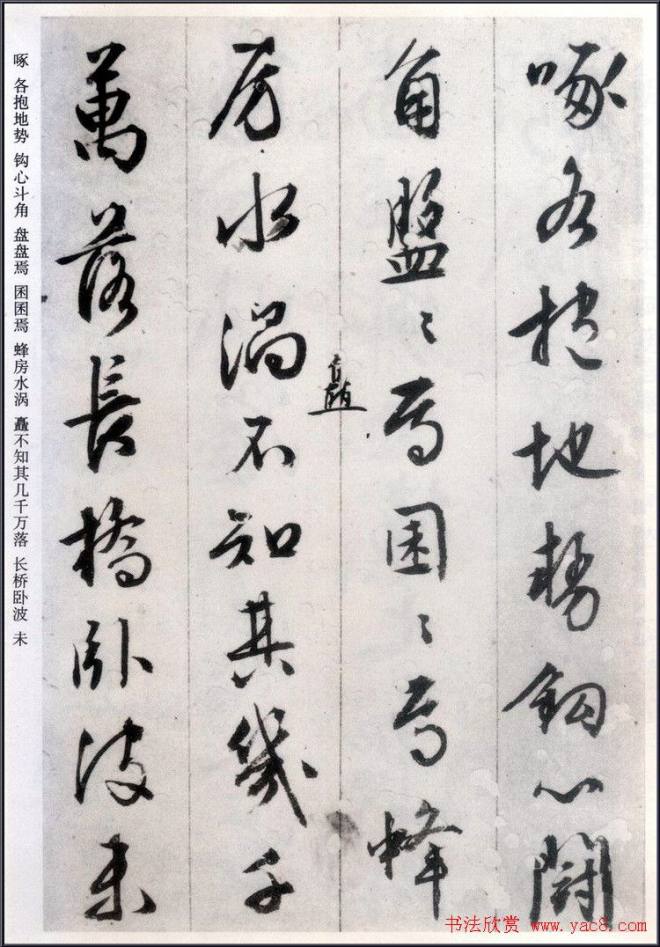 啄各抱地勢鉤心鬪
角盤〻焉囷〻焉蜂
房水渦不知其幾千
矗
萬落長橋卧波未
啄 各抱地势 钩心斗角 盘盘焉 囷囷焉 蜂房水涡 矗不知其几千万落 长桥卧波 未
书法欣赏 www.yac8.com